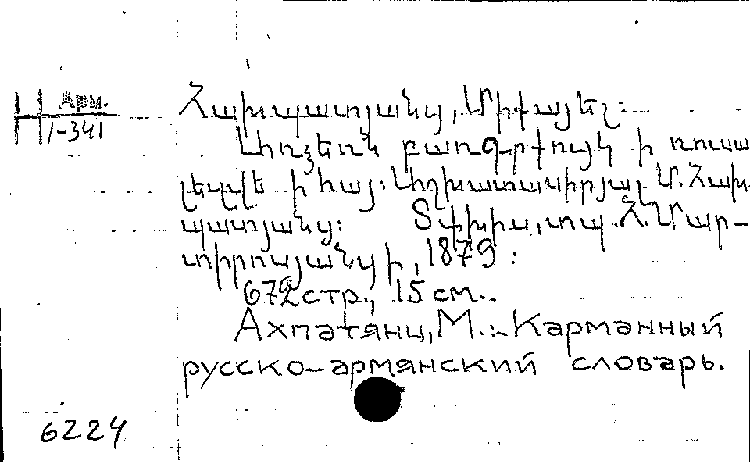 Арм.
1-341
Հախպատյանց, Միքայել:
Լիռշեռն բառգրքույկ ի ռուսա
լեզվե ի հայ: Աշխատասիրյալ Մ. Հախ
պատյանց: Տփխիս, տպ. Հ. Մար-
տիրոսյանցի, 1879:
672 стр., 15 см.
Ахпатянц, М.: Карманный
русско-армянский словарь.
6224